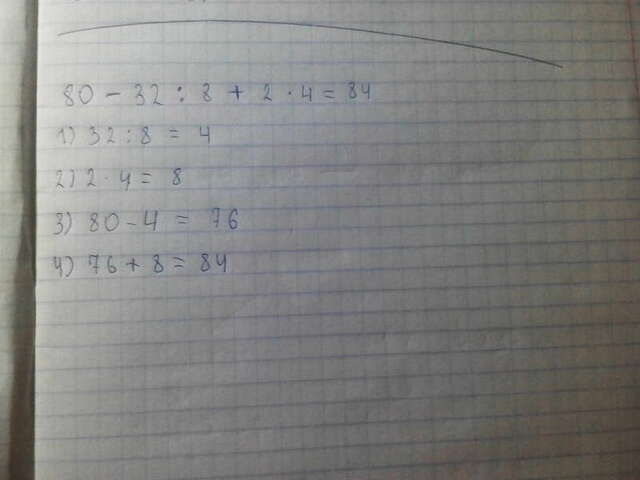 80 - 32 : 8 + 2 · 4 = 84
1) 32 : 8 = 4
2) 2 · 4 = 8
3) 80 - 4 = 76
4) 76 + 8 = 84